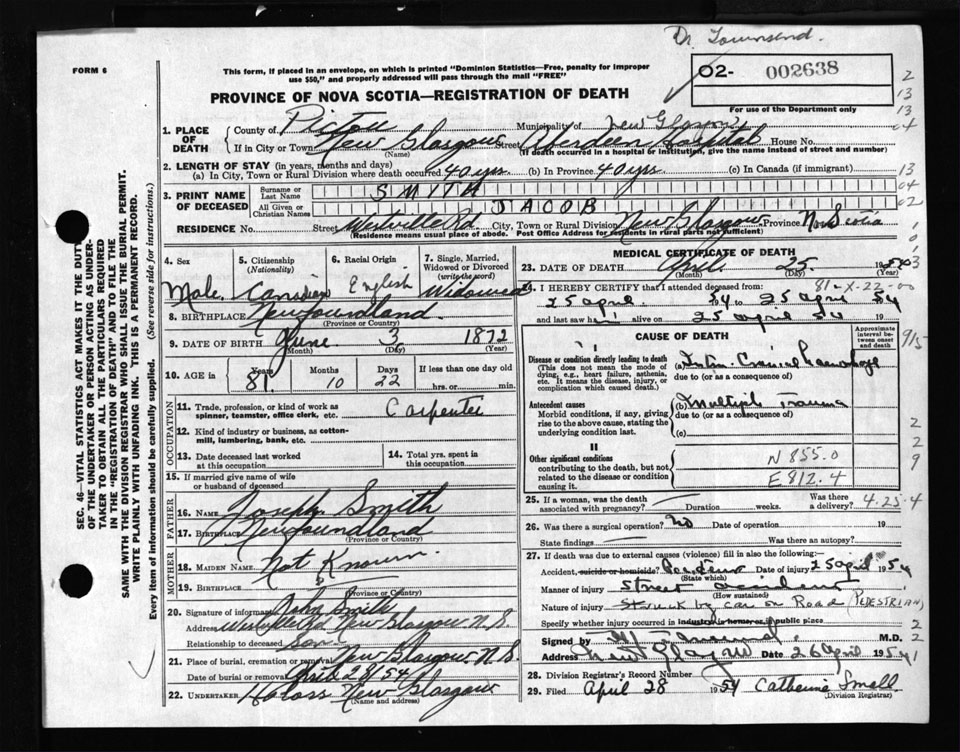 Dr. Townsend.
FORM 6
This form, if placed in an envelope, on which is printed "Dominion Statistics—Free, penalty for improper
use $50," and properly addressed will pass through the mail "FREE"
02- 002638
For use of the Department only
PROVINCE OF NOVA SCOTIA—REGISTRATION OF DEATH
1. PLACE OF DEATH
County of Pictou Municipality of New Glasgow
If in City or Town New Glasgow (Name) Street Aberdeen Hospital House No.
(If death occurred in a hospital or institution, give the name instead of street and number)
2. LENGTH OF STAY (in years, months and days)
(a) In City, Town or Rural Division where death occurred 40 yrs. (b) In Province 40 yrs. (c) In Canada (if immigrant)
3. PRINT NAME OF DECEASED
Surname or Last Name SMITH
All Given or Christian Names JACOB
RESIDENCE No. Street Westville Rd. City, Town or Rural Division New Glasgow Province Nova Scotia
(Residence means usual place of abode. Post Office Address for residents in rural parts not sufficient)
4. Sex Male
5. Citizenship (Nationality) Canadian
6. Racial Origin English
7. Single, Married, Widowed or Divorced (write the word) Widowed
8. BIRTHPLACE Newfoundland
(Province or Country)
9. DATE OF BIRTH June 3 1872
(Month) (Day) (Year)
10. AGE in Years 81 Months 10 Days 22 If less than one day
hrs. or min.
OCCUPATION
11. Trade, profession, or kind of work as spinner, teamster, office clerk, etc. Carpenter
12. Kind of industry or business, as cotton-mill, lumbering, bank, etc.
13. Date deceased last worked at this occupation
14. Total yrs. spent in this occupation
15. If married give name of wife or husband of deceased
FATHER
16. NAME Joseph Smith
17. BIRTHPLACE Newfoundland
(Province or Country)
MOTHER
18. MAIDEN NAME Not Known
19. BIRTHPLACE
(Province or Country)
20. Signature of informant John Smith
Address Westville Rd New Glasgow N.S.
Relationship to deceased Son
21. Place of burial, cremation or removal New Glasgow. N.S.
Date of burial or removal April 28/54
22. UNDERTAKER New Glasgow
(Name and address)
MEDICAL CERTIFICATE OF DEATH
23. DATE OF DEATH April 25 1954
(Month) (Day) (Year)
81-X-22-00
24. I HEREBY CERTIFY that I attended deceased from:
25 april 54 to 25 april 54
and last saw h alive on 25 april 54 19
CAUSE OF DEATH
Approximate interval between onset and death
I
Disease or condition directly leading to death
(This does not mean the mode of dying, e.g., heart failure, asthenia, etc. It means the disease, injury, or complication which caused death.)
(a)
due to (or as a consequence of)
Antecedent causes
Morbid conditions, if any, giving rise to the above cause, stating the underlying condition last.
(b) Multiple Trauma
due to (or as a consequence of)
(c)
II
Other significant conditions
contributing to the death, but not related to the disease or condition causing it.
N 855.0
E 812.4
25. If a woman, was the death associated with pregnancy? Duration weeks. Was there a delivery?
4-25-4
26. Was there a surgical operation? No Date of operation 19
State findings Was there an autopsy?
27. If death was due to external causes (violence) fill in also the following:
Accident, suicide or homicide? Accident Date of injury 25 april 1954
(State which)
Manner of injury street accident
(How sustained)
Nature of injury Struck by car on Road (PEDESTRIAN)
Specify whether injury occurred in industry in home or in public place
Signed by Townsend. M.D.
Address New Glasgow Date 26 April 1954
28. Division Registrar's Record Number
29. Filed April 28 1954 Catherine Small
(Division Registrar)
SEC. 46—VITAL STATISTICS ACT MAKES IT THE DUTY
OF THE UNDERTAKER OR PERSON ACTING AS UNDER-
TAKER TO OBTAIN ALL THE PARTICULARS REQUIRED
IN THE "REGISTRATION OF DEATH" AND TO FILE THE
SAME WITH THE DIVISION REGISTRAR WHO SHALL ISSUE THE BURIAL PERMIT.
WRITE PLAINLY WITH UNFADING INK. THIS IS A PERMANENT RECORD.
Every item of information should be carefully supplied. (See reverse side for instructions.)
2
13
13
04
13
04
02
2
2
9
2
2
1